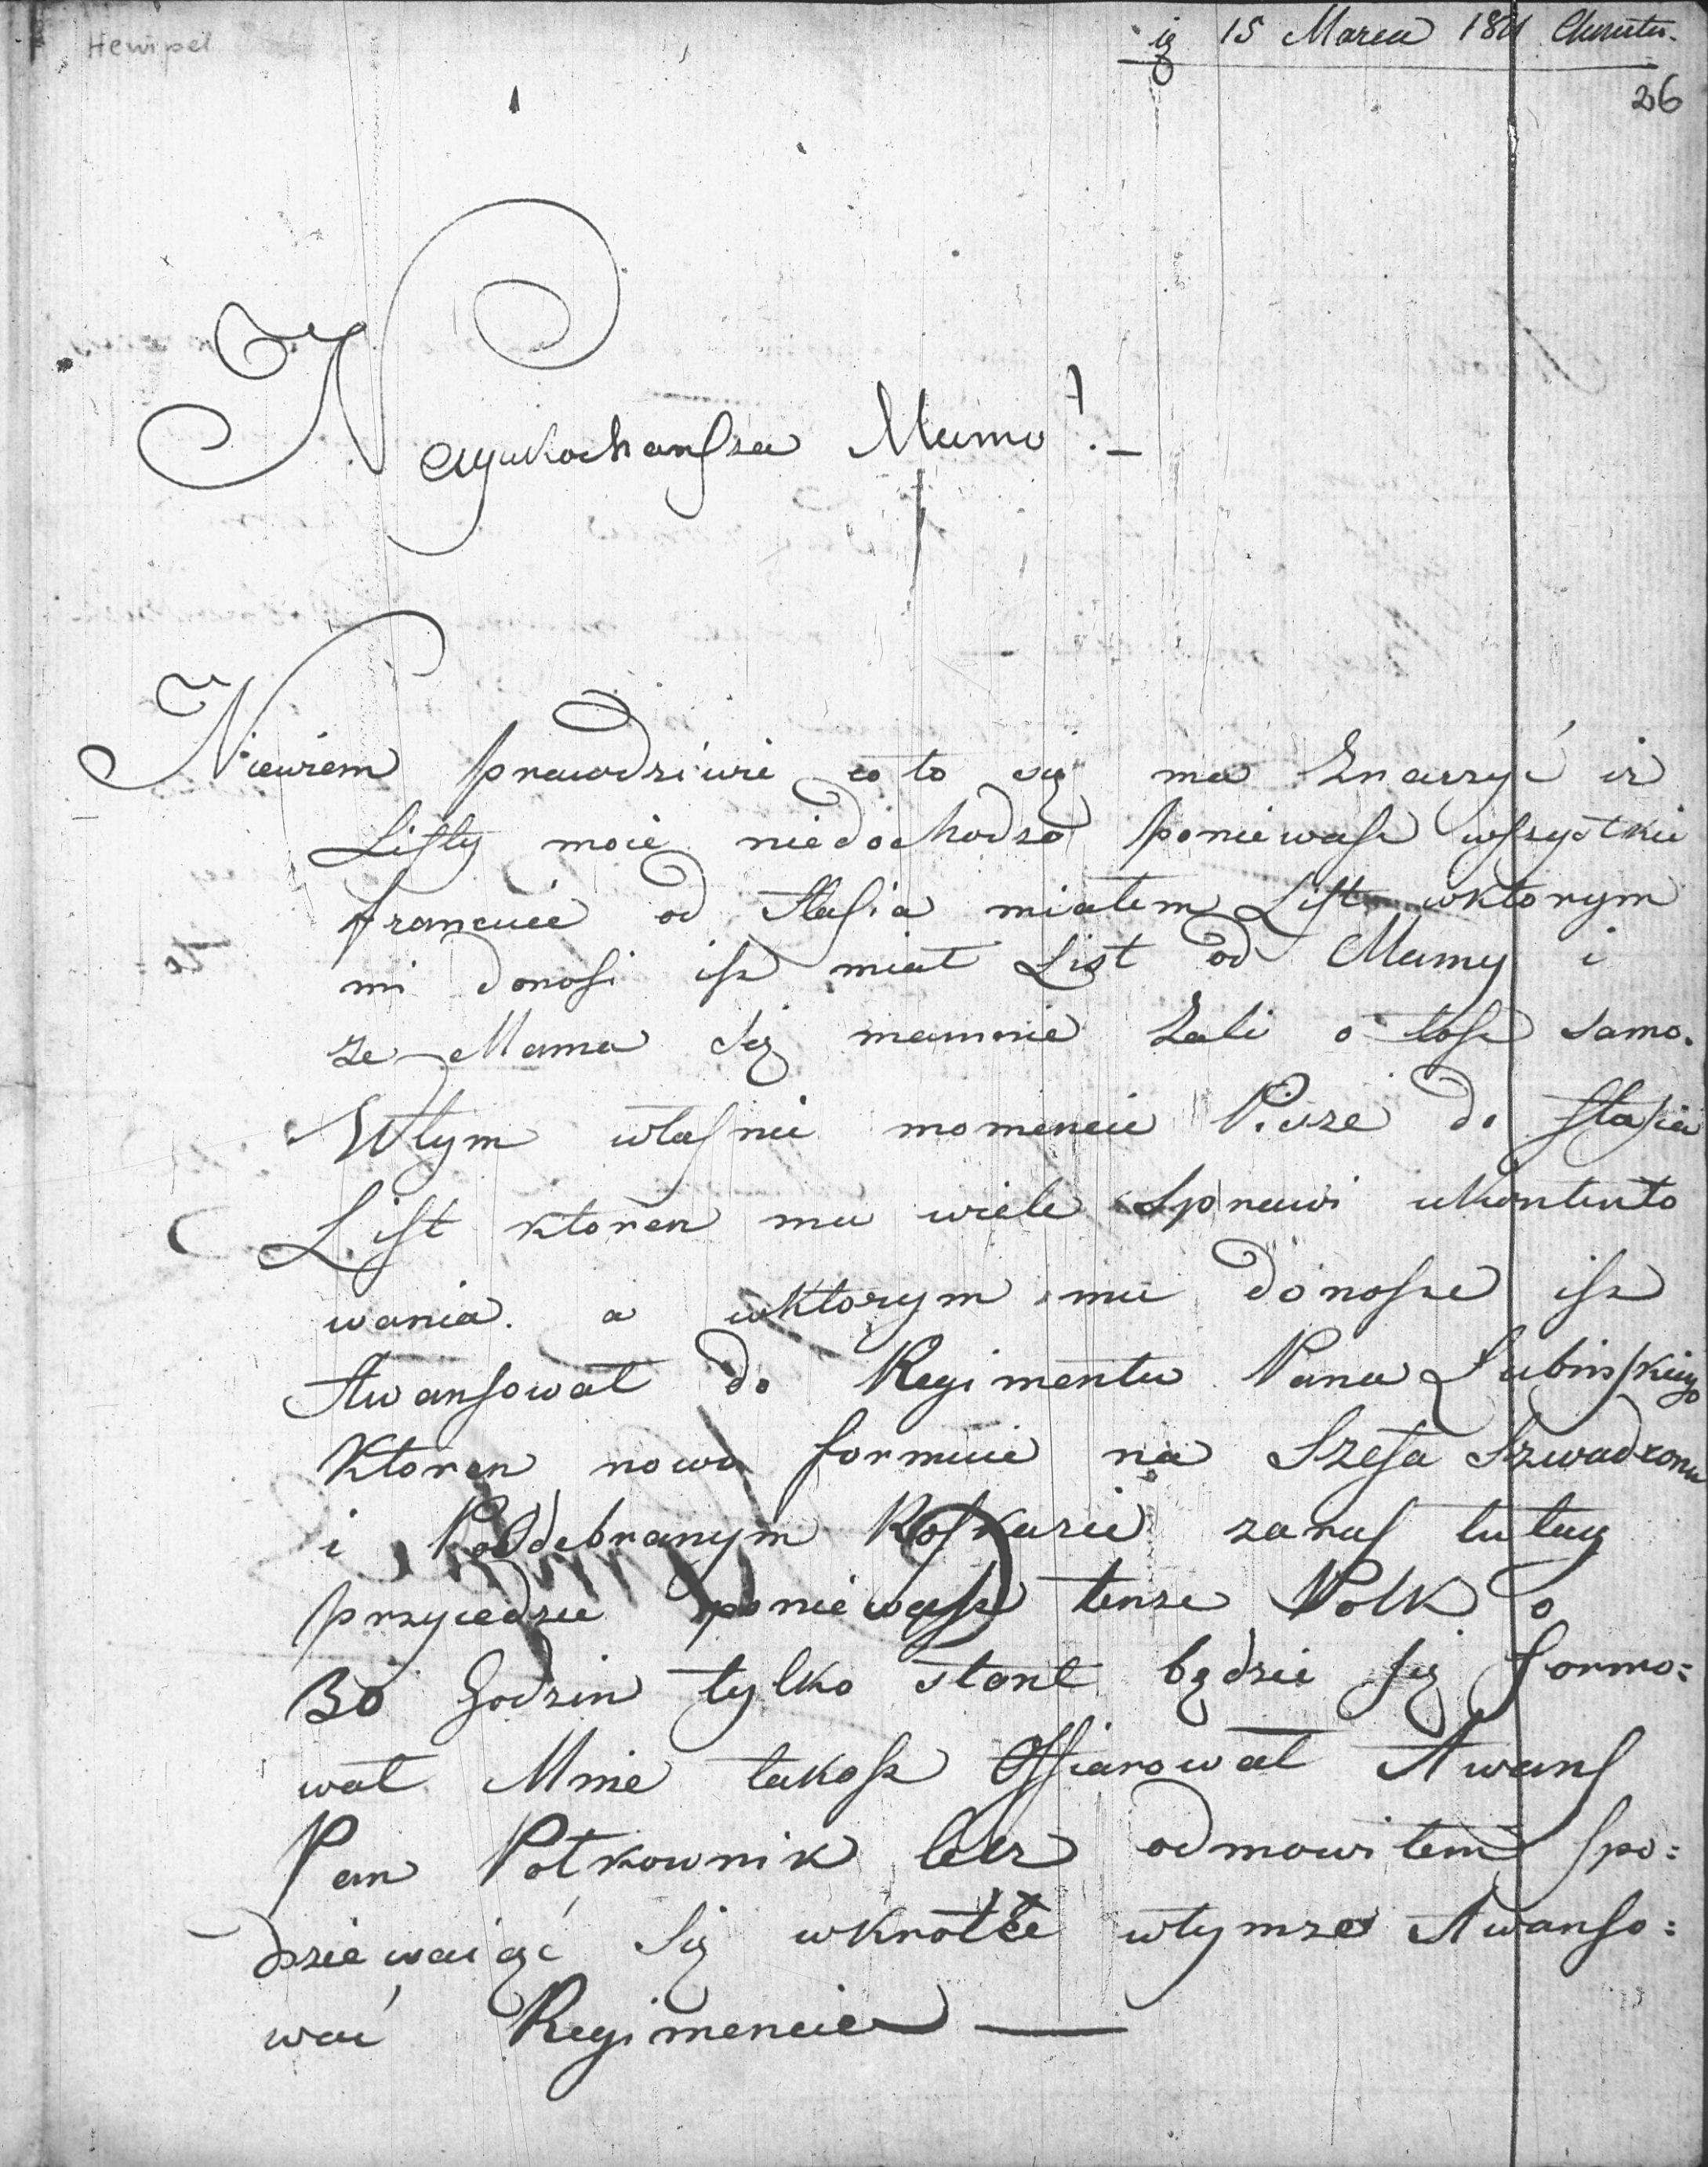 Hempel
15 Marca 1811 Chantu.
26
Nayukochansza Mamo!
Niewiem prawdziwie co to się ma znaczyć iz
Listy moie niedochodzo poniewasz wszystkie
francuie od Stasia miałem List wktorym
mi donosi isz miał List od Mamy i
ze Mama się namnie zali o tosz samo.
Wtym własnie momencie Pisze do Stasia
List ktoren mu wiele Sprawi ukontento
wania. a wktorym mu donosze isz
Awansował do Regimentu Pana Lubinskiego
Ktoren nowo formuie na Szefa Szwadronu
i Poodebranym Roskazie zaras tutay
przyiedzie poniewasz tenze Polk o
30 Godzin tylko stont będzie się formo=
wał Mnie takosz Offiarował Awans
Pan Połkownik lecz odmowiłem spo=
dziewaiąć się wkrotce wtymze Awanso=
wać Regimencie